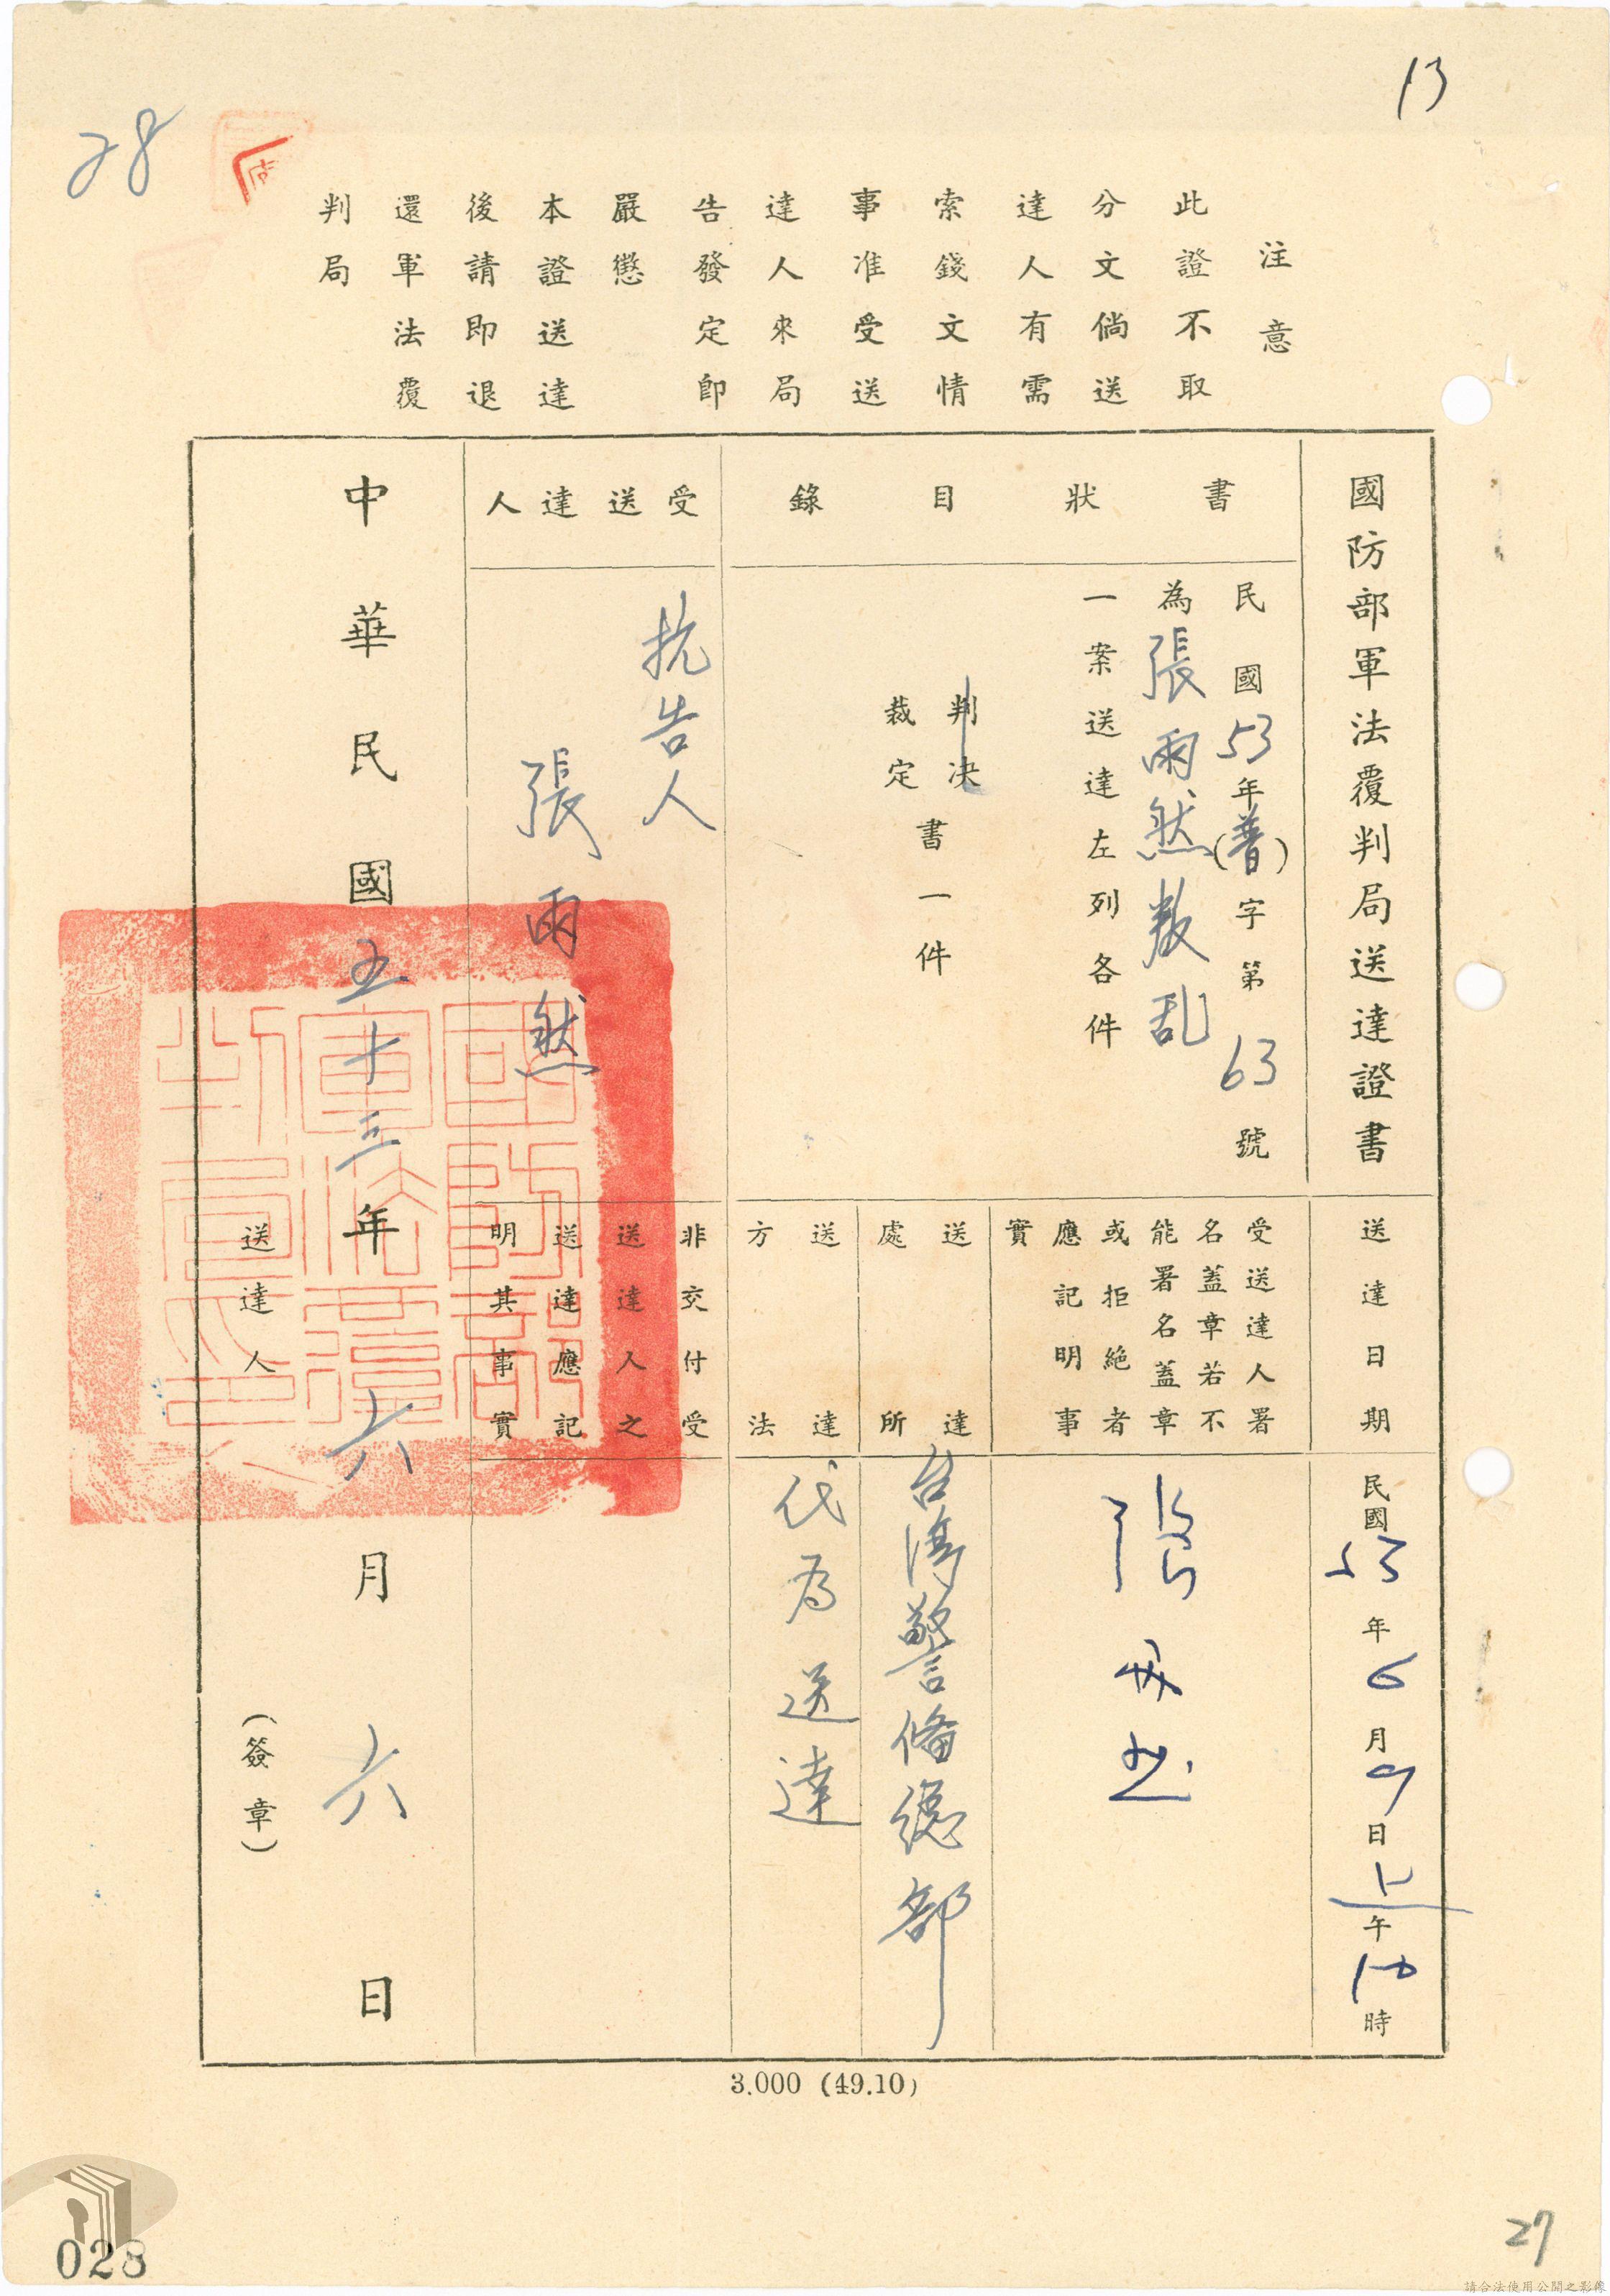 13
28
注意
此證不取
分文倘送
達人有需
索錢文情
事准受送
達人來局
告發定即
嚴懲
本證送達
後請即退
還軍法覆
判局
國防部軍法覆判局送達證書
書狀目錄
民國53年(普)字第63號
為張雨然叛乱
一案送達左列各件
判決
裁定
書一件
受送達人
抗告人
張雨然
送達日期
民國53年6月9日上午10時
受送達人署
名蓋章若不
能署名蓋章
或拒絕者
應記明事
實
張雨然
送達
處所
台灣警備總部
送達
方法
代為送達
非交付受
送達人之
送達應記
明其事實
中華民國五十三年六月六日
送達人
(簽章)
國防部軍法覆判局印
3.000 (49.10)
028
27
請合法使用公開之影像